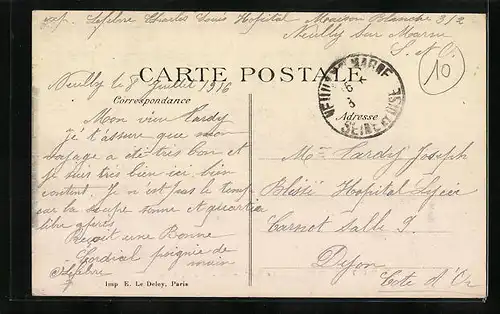 exp. Lefebre Charles Louis Hopital Maison Blanche 3/2
Neuilly sur Marne
S. et O.
10
CARTE POSTALE
NEUILLY S MARNE
6
8
SEINE ET OISE
Neuilly le 8 Juillet 1916
Correspondance
Adresse
Mon vieu Tardy
je t'assure que mon
voyage a été très bon et
je suis très bien ici bien
content. Je n'est pas le temps
car la soupe sonne et quartier
libre après
Reçoit une Bonne
Cordial poignée de
main
Lefebre
Mr Tardy Joseph
Blessé Hopital Lycée
Carnot Salle 9
Dijon
Cote d'Or
Imp E. Le Deley, Paris